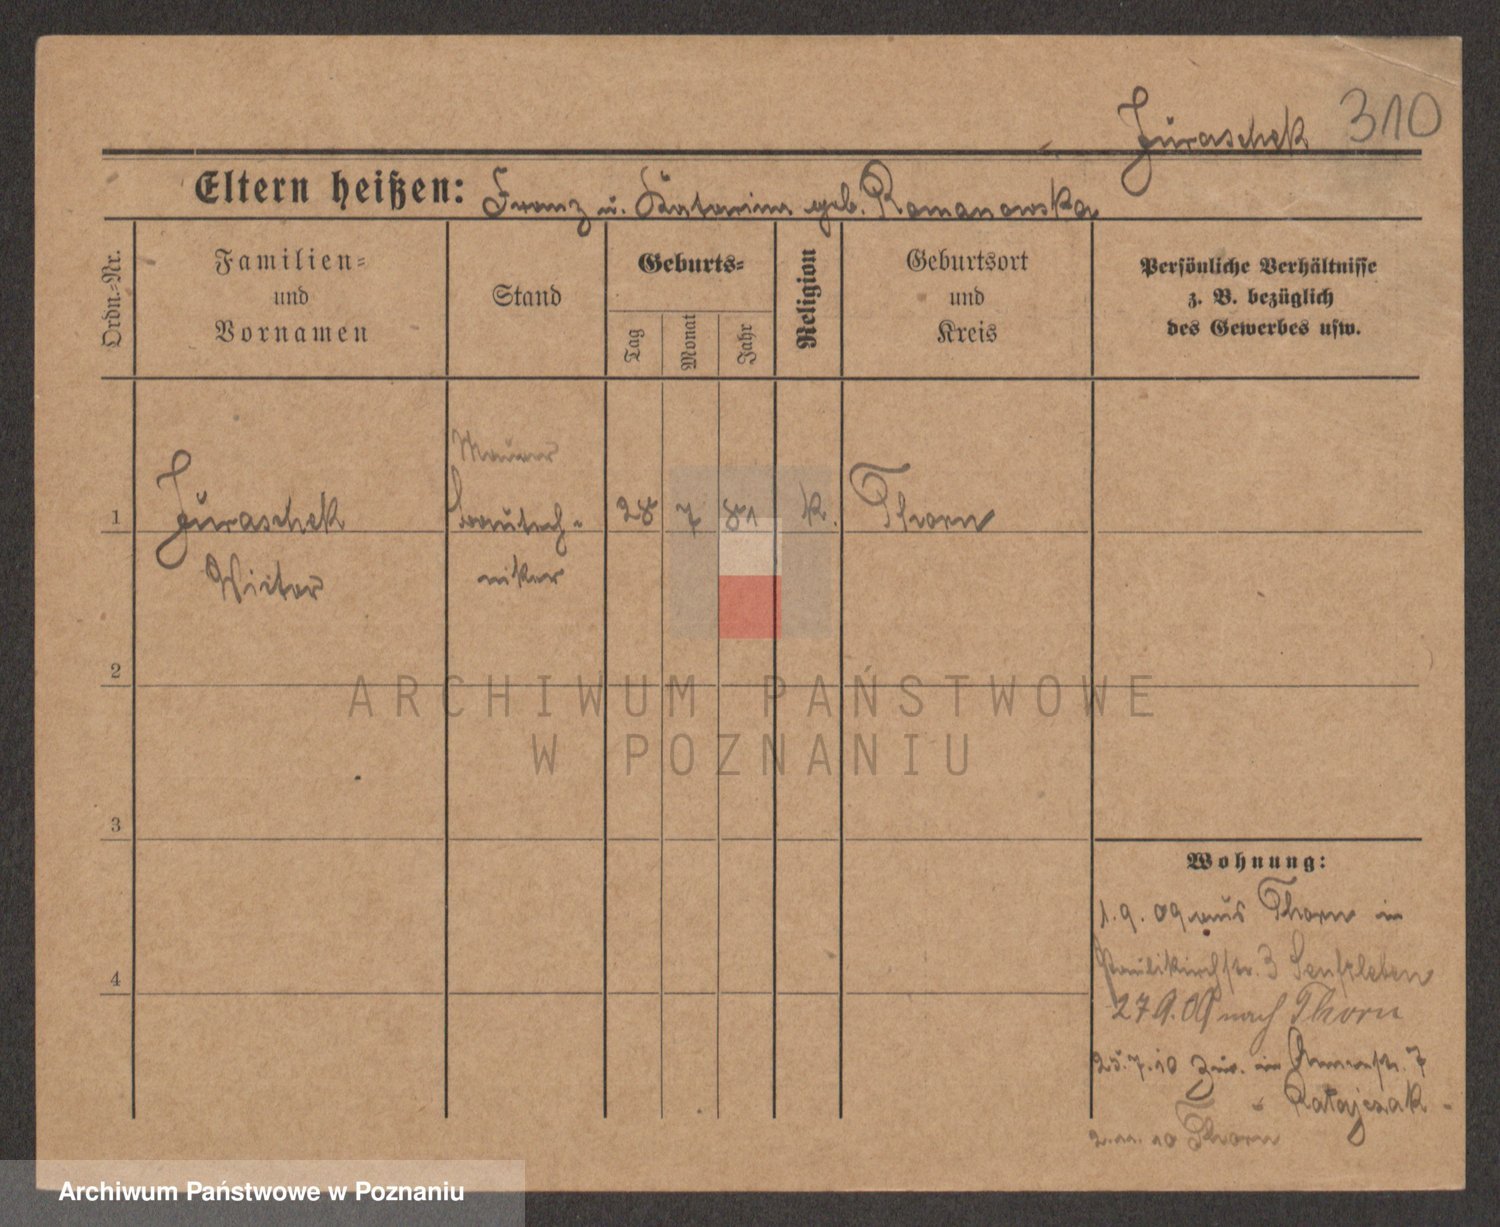 Juraschek 310
Eltern heißen: Franz u. Katarina geb. Romanowska
Ordn.-Nr.
Familien-
und
Vornamen
Stand
Geburts-
Tag
Monat
Jahr
Religion
Geburtsort
und
Kreis
Persönliche Verhältnisse
z. B. bezüglich
des Gewerbes usw.
Maurer
1 Juraschek Bautech- 28 7 81 k. Thorn
Victor niker
2
ARCHIWUM PAŃSTWOWE
W POZNANIU
3
Wohnung:
1.9.09 aus Thorn in
Paulikirchstr. 3 Senftleben
4
27.9.09 nach Thorn
25.7.10 zur. in 7
- Ratajczak -
2.11.10 Thorn
Archiwum Państwowe w Poznaniu